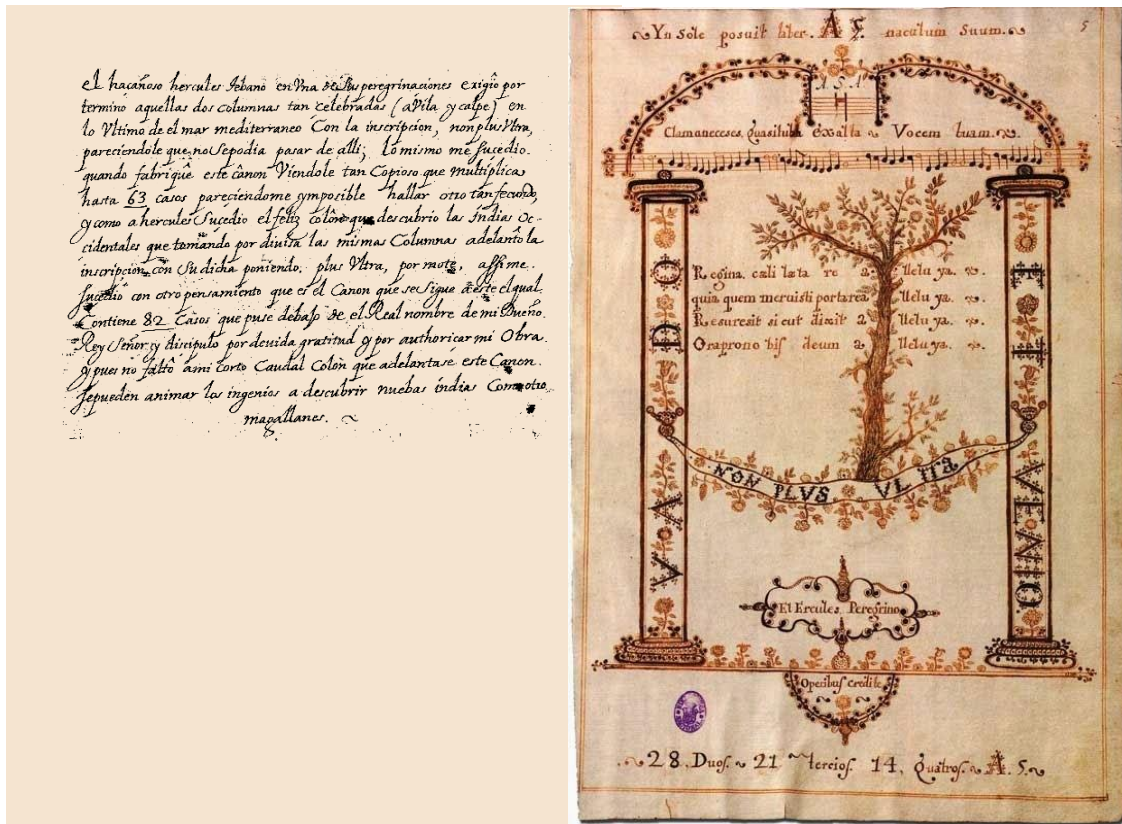 el hacañoso hercules tebano en Vna de Sus peregrinaciones exigio por
termino aquellas dos columnas tan celebradas (aVila y calpe) en
lo Vltimo de el mar mediterraneo Con la inscripcion, non plus Vltra,
pareciendole que no Sepodia pasar de alli; lo mismo me Sucedio.
quando fabriquè este cânon Viendole tan Copioso que multiplica
hasta 63 casos pareciendome ymposible hallar otro tan fecundo,
y como a hercules Sucedio el feliz colon que descubrio las Indias oc-
cidentales que tomando por divisa las mismas Columnas adelanto la
inscripcion con Su dicha poniendo. plus Vltra, por mote, assi me.
Sucedio con otro pensamiento que es el Canon que se Sigue a este el qual
Contiene 82 Casos que puse debajo de el Real nombre de mi Dueño.
Rey Señor y discipulo por devida gratitud y por authoricar mi Obra.
y pues no faltò a mi corto Caudal Colòn que adelantase este Canon.
Sepueden animar los ingenios a descubrir nuebas indias Como otro
magallanes.
Yn Sole posuit tiber. A S. naculum Suum.
5
A S A
H
Clamaneceses, quasituba exalta Vocem tuam.
Regina cæli læta re a lleluya.
quia quem meruisti portare a lleluya.
Resurexit si cut dixit a lleluya.
Ora pro no bis deum a lleluya.
NON PLVS VLtra
El Ercules Peregrino
Operibus credite
28. Duos. 21 tercios. 14. Quatros. A. S.